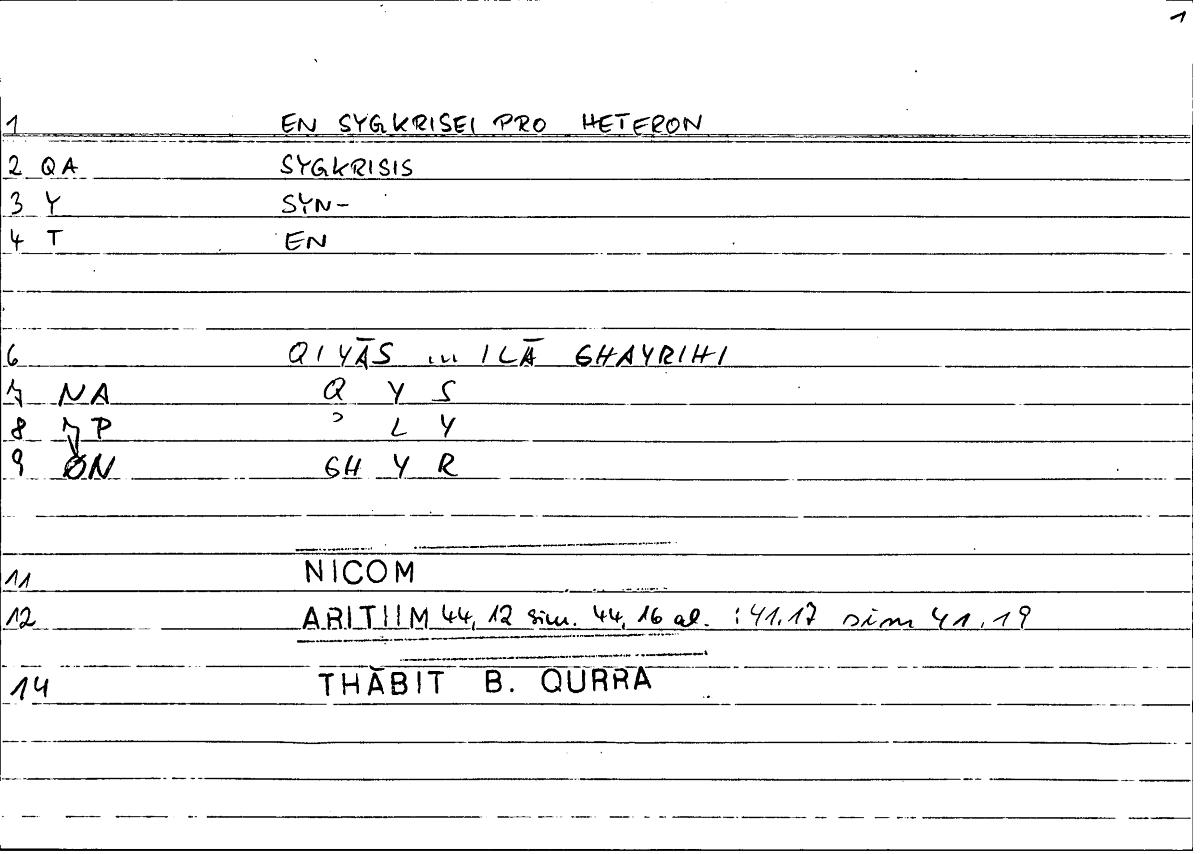 1
1 EN SYGKRISEI PRO HETERON
2 QA SYGKRISIS
3 Y SYN-
4 T EN
6 QIYĀS ... ILĀ GHAYRIHI
7 NA Q Y S
8 P ʾ L Y
9 ON GH Y R
11 NICOM
12 ARITHM 44, 12 sim. 44, 16 al. : 41.17 sim 41.19
14 THĀBIT B. QURRA